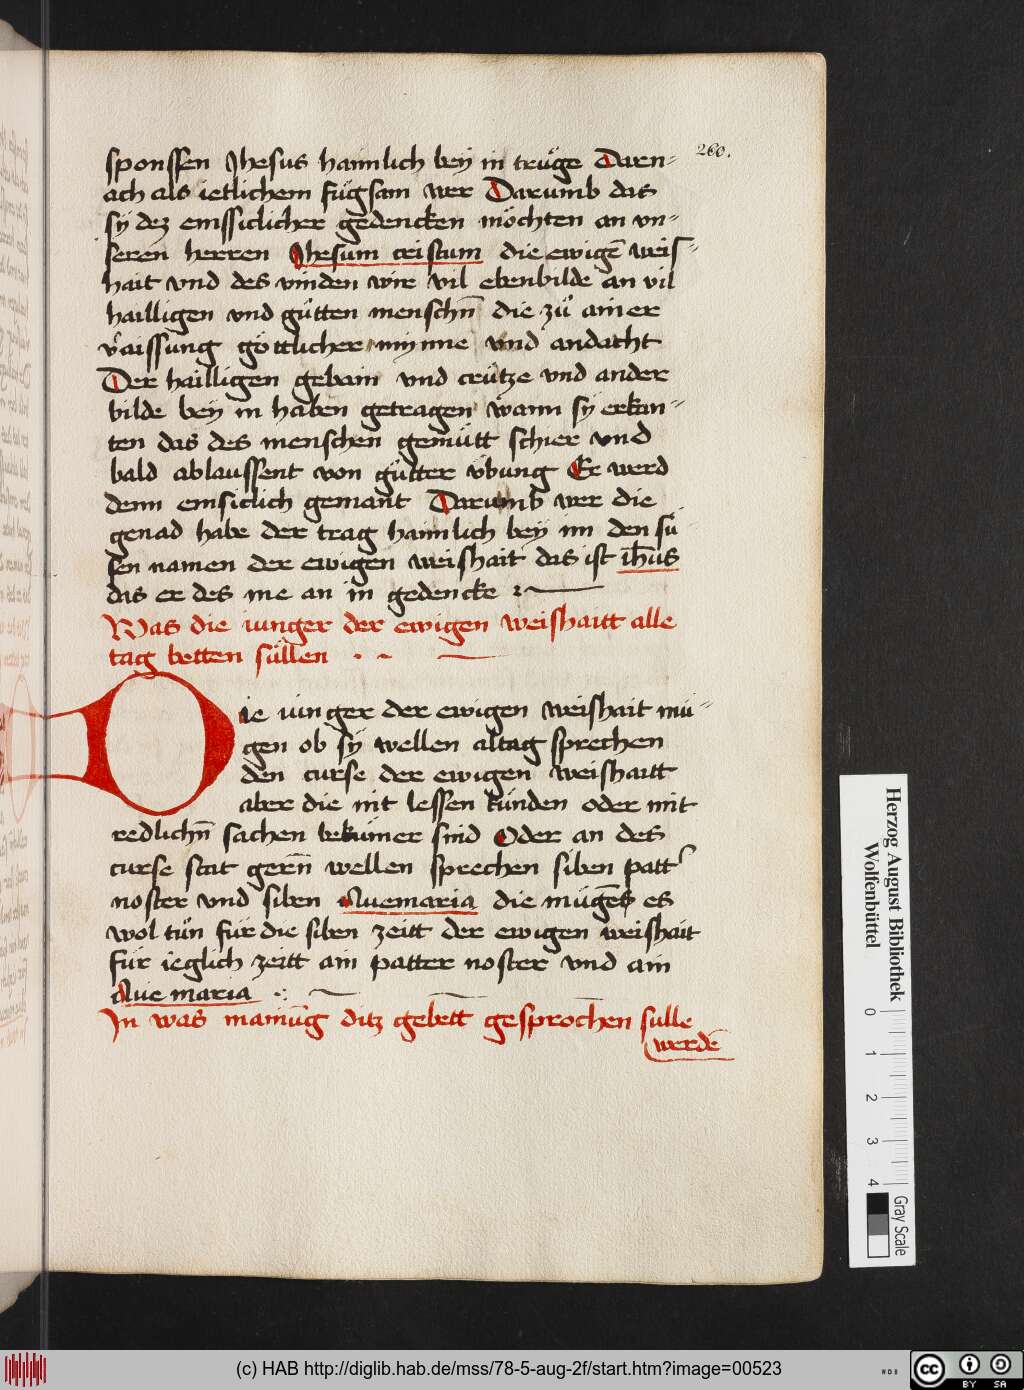 260.
sponssen Jhesus haimlich bey in trůge Darn-
ach als ietlichem fůgsam wer Darumb das
sy dez emssiclicher gedencken möchten an vn-
seren herren Jhesum cristum die ewigē weis-
hait vnd des vinden wir vil ebenbilde an vil
hailligen vnd gůtten menschn̄ die zů ainer
v̾aissung göttlicher minne vnd andacht
Der hailligen gebain vnd crütze vnd ander
bilde bey in haben getragen wann sy erkan-
ten das des menschen gemütt schier vnd
bald ablaussent von gůtter v̈bung Er werd
denn emsiclich gemant Darumb wer die
genad habe der trag haimlich bey im den sü
sen namen der ewigen weishait das ist ih̄us
das er des me an in gedencke
Was die iunger der ewigen weishaitt alle
tag betten süllen
Die iunger der ewigen weishait mü-
gen ob sy wellen altag sprechen
den curse der ewigen weishaitt
aber die nit lessen künden oder mit
redlichn̄ sachen bekümer sind Oder an des
curse stat gern̄ wellen sprechen siben patt̾
noster vnd siben Auemaria die mügēs es
wol tůn für die siben zeitt der ewigen weishait
für ieglich zeitt ain patter noster vnd ain
Aue maria
In was mainūg ditz gebett gesprochen sulle
werdē
Herzog August Bibliothek
Wolfenbüttel
0 1 2 3 4
Gray Scale
(c) HAB http://diglib.hab.de/mss/78-5-aug-2f/start.htm?image=00523
cc BY SA